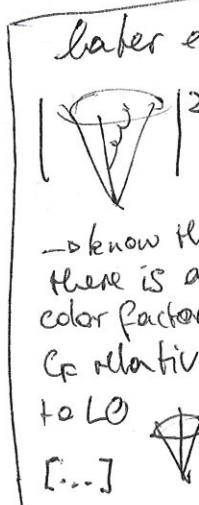 later e
| |²
→ know th
there is a
color factor
C_F relativ
to LO
[...]